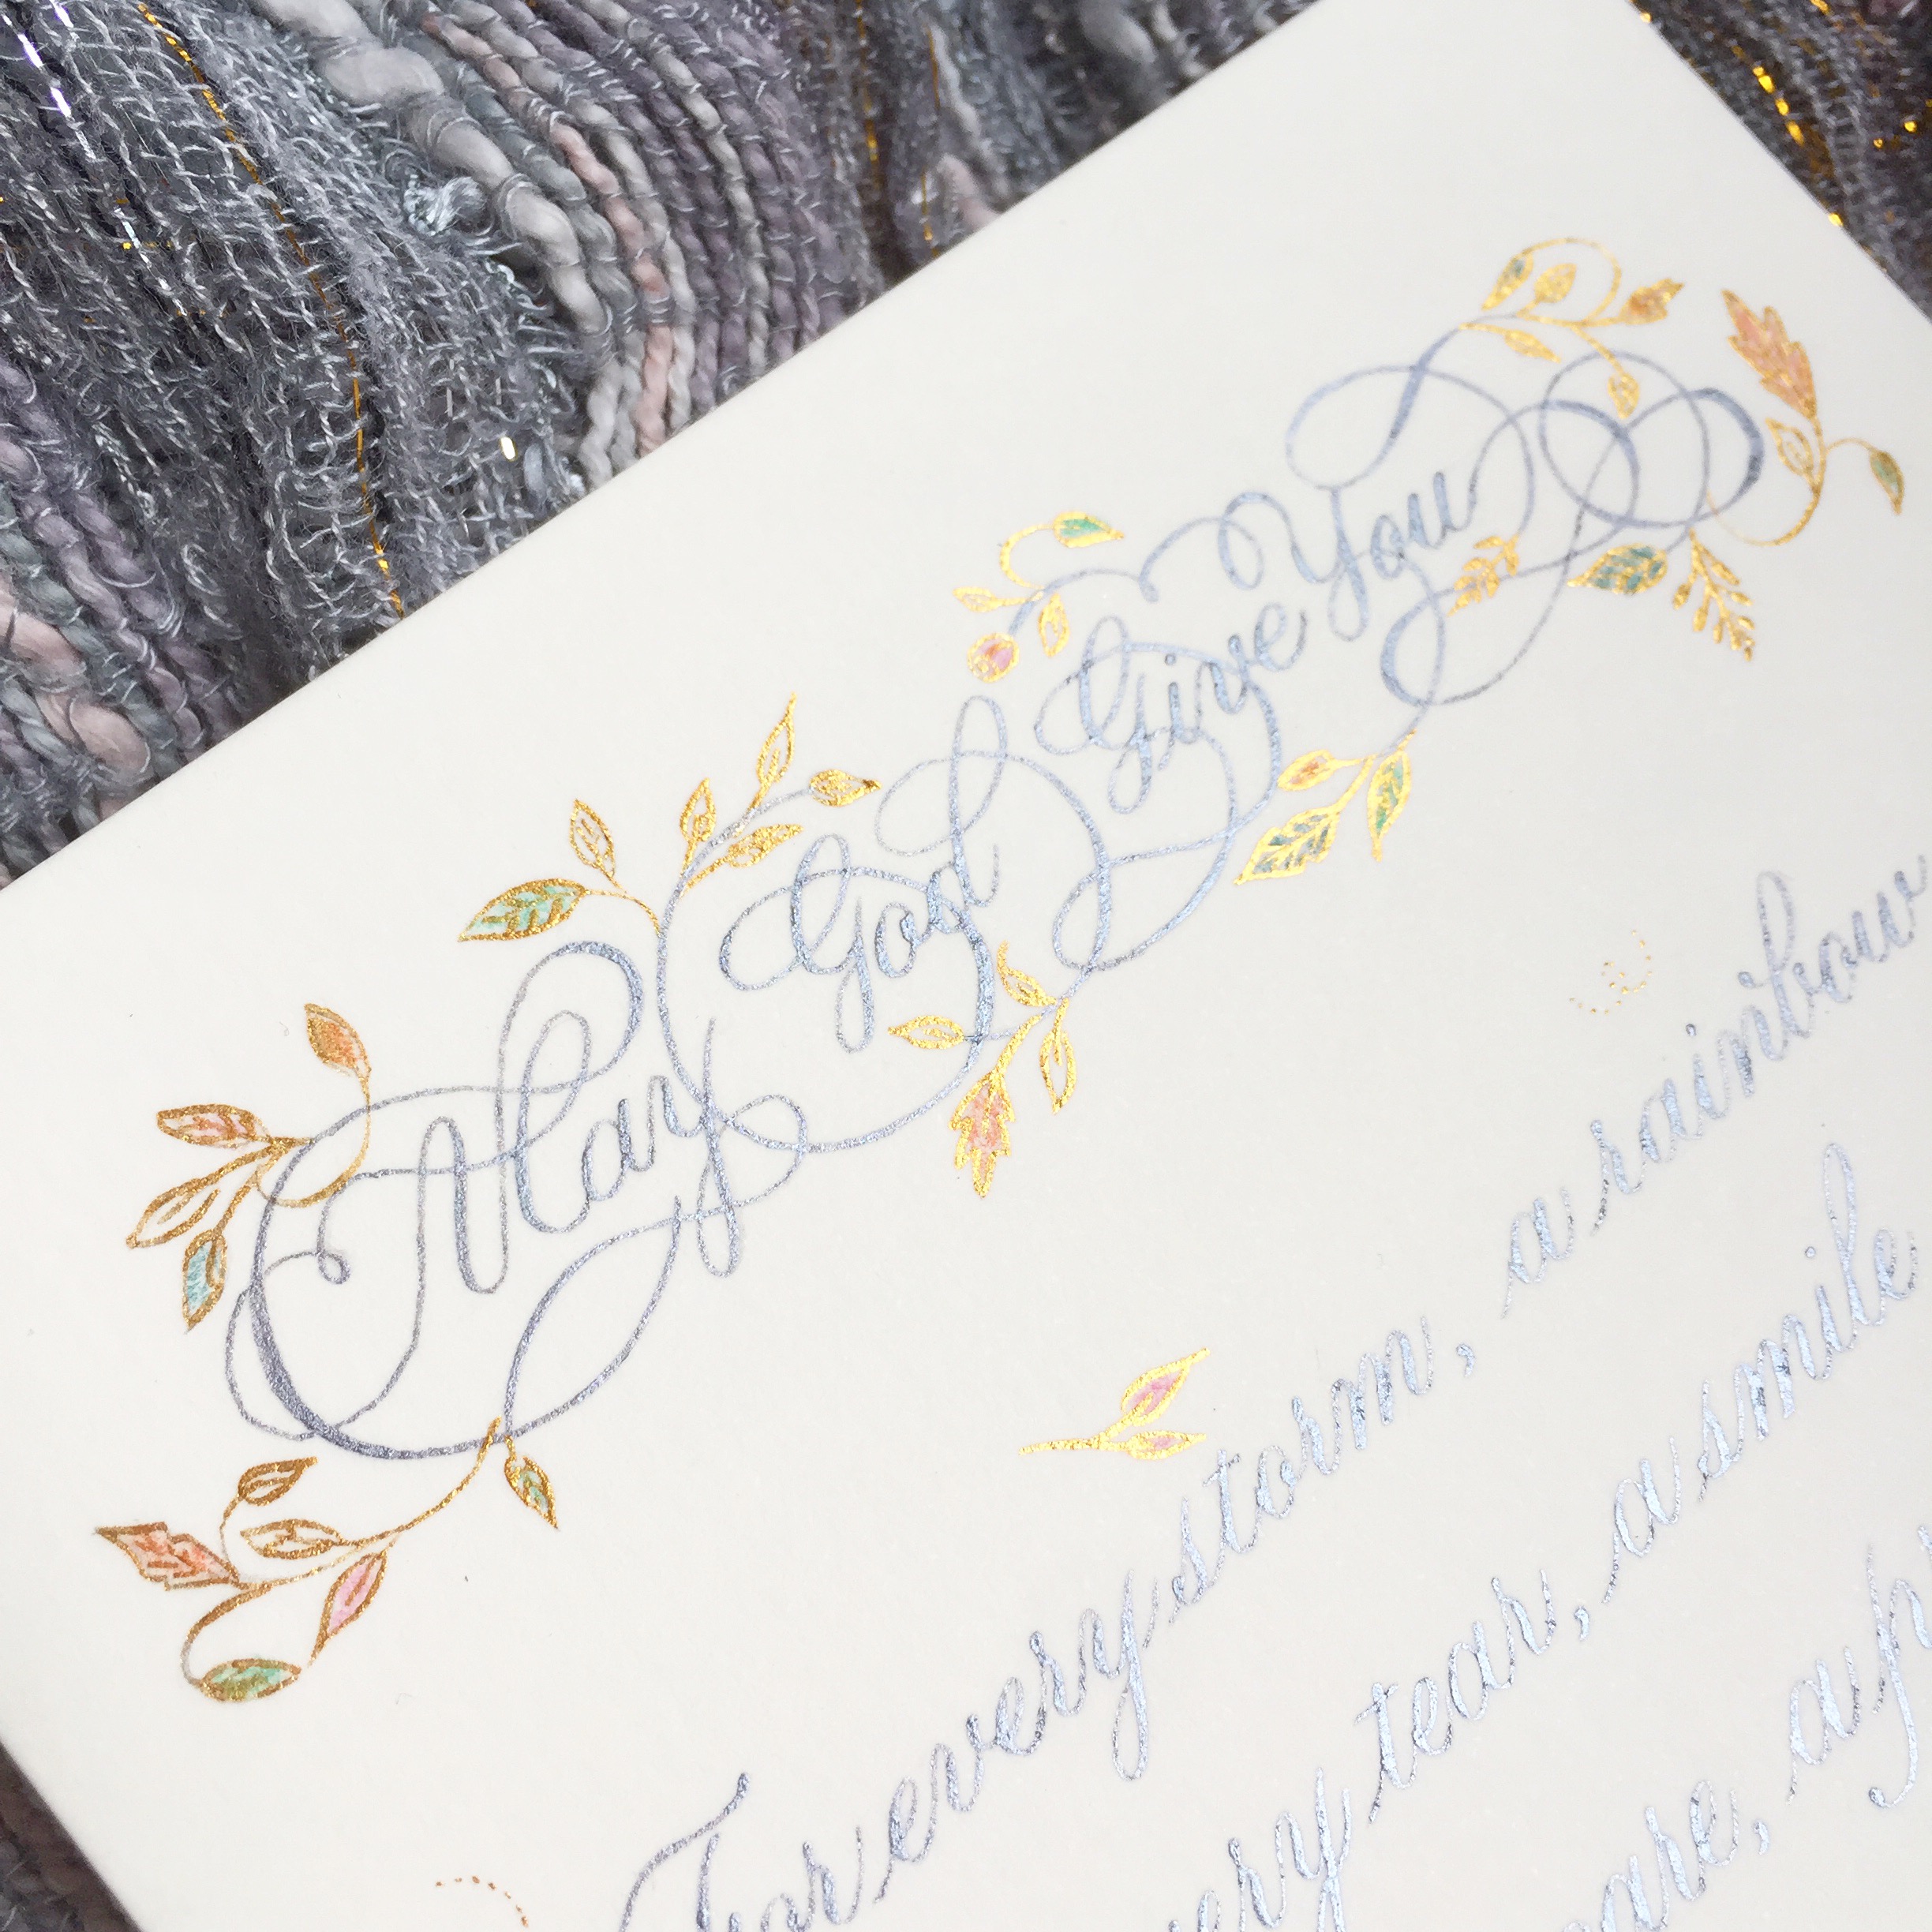 May God Give You
For every storm, a rainbow
tear, a smile